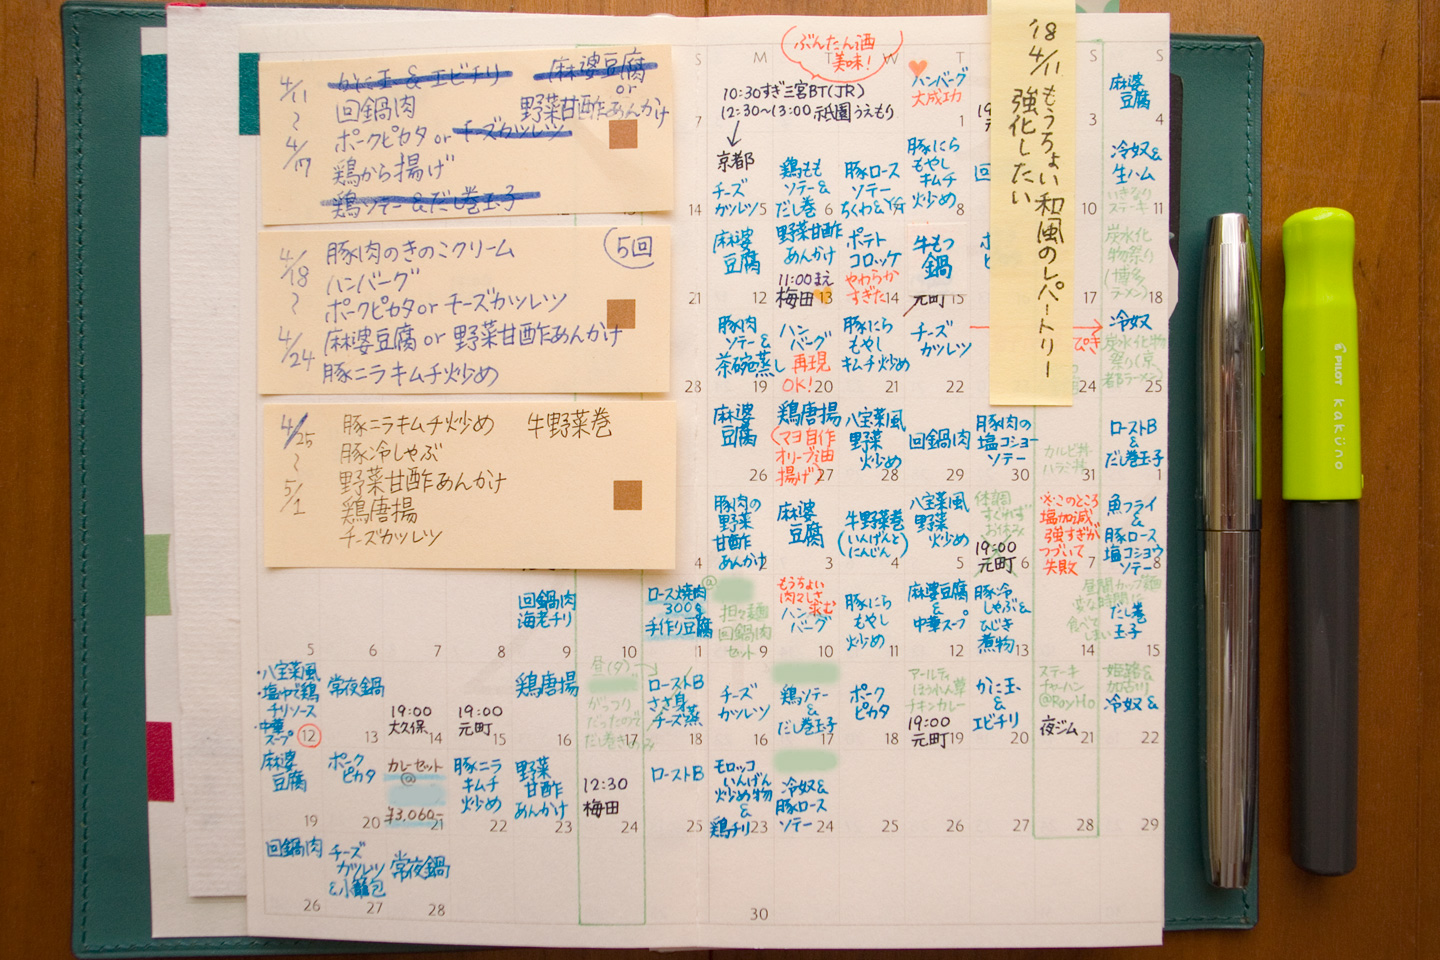 4/11
〜
4/17
かに玉 & エビチリ
麻婆豆腐
or
回鍋肉
野菜甘酢あんかけ
ポークピカタ or チーズカツレツ
鶏から揚げ
鶏ソテー & だし巻玉子
4/18
〜
4/24
豚肉のきのこクリーム
5回
ハンバーグ
ポークピカタ or チーズカツレツ
麻婆豆腐 or 野菜甘酢あんかけ
豚ニラキムチ炒め
4/25
〜
5/1
豚ニラキムチ炒め
牛野菜巻
豚冷しゃぶ
野菜甘酢あんかけ
鶏唐揚
チーズカツレツ
18
4/11 もうちょい和風のレパートリー
強化したい
S
M
T
W
T
S
S
ぶんたん酒
美味!
10:30すぎ三宮BT(JR)
12:30〜13:00 祇園うえもり
京都
ハンバーグ
大成功
1
麻婆
豆腐
4
7
チーズ
カツレツ
5
鶏もも
ソテー&
だし巻
6
豚ロース
ソテー
ちくわ&
豚にら
もやし
キムチ
炒め
8
10
冷奴&
生ハム
いきなり
ステーキ
11
14
麻婆
豆腐
12
野菜甘酢
あんかけ
11:00まえ
梅田
13
ポテト
コロッケ
やわらか
すぎた
14
牛もつ
鍋
元町
15
17
炭水化
物祭り
(博多
ラーメン)
18
21
豚肉
ソテー&
茶碗蒸し
19
ハン
バーグ
再現
OK!
20
豚にら
もやし
キムチ炒め
21
チーズ
カツレツ
22
24
冷奴
炭水化物
祭り(京
都ラーメン)
25
28
麻婆
豆腐
26
鶏唐揚
(マヨ自作
オリーブ油
揚げ)
27
八宝菜風
野菜
炒め
28
回鍋肉
29
豚肉の
塩コショー
ソテー
30
カルビ丼
ハラミ丼
31
ローストB
&
だし巻玉子
1
豚肉の
野菜
甘酢
あんかけ
2
麻婆
豆腐
3
牛野菜巻
(いんげんと
にんじん)
4
八宝菜風
野菜
炒め
5
体調
すぐれず
お休み
19:00
元町
6
※このところ
塩加減
強すぎが
つづいて
失敗
7
魚フライ
&
豚ロース
塩コショウ
ソテー
8
4
5
6
7
8
回鍋肉
海老チリ
9
10
ロース焼肉@
300g
手作り豆腐
11
担々麺
回鍋肉
セット
9
もうちょい
肉々しさ
求む
ハン
バーグ
10
豚にら
もやし
炒め
11
麻婆豆腐
&
中華スープ
12
豚冷
しゃぶ&
ひじき
煮物
13
14
昼間カップ麺
変な時間に
食べて
しまい
だし巻
玉子
15
・八宝菜風
・塩ゆで鶏
チリソース
・中華
スープ
12
常夜鍋
13
19:00
大久保
14
19:00
元町
15
鶏唐揚
16
がっつり
だったので
だし巻きのみ
17
ローストB
ささ身
チーズ蒸
18
チーズ
カツレツ
16
鶏ソテー
&
だし巻玉子
17
ポーク
ピカタ
18
アールティ
ほうれん草
チキンカレー
19:00
元町
19
かに玉
&
エビチリ
20
ステーキ
チャーハン
@RoyHo
夜ジム
21
姫路&
加古川
冷奴&
22
麻婆
豆腐
19
ポーク
ピカタ
20
カレーセット
@
¥3,060-
21
豚ニラ
キムチ
炒め
22
野菜
甘酢
あんかけ
23
12:30
梅田
24
ローストB
25
モロッコ
いんげん
炒め物
&
鶏チリ
23
冷奴&
豚ロース
ソテー
24
25
26
27
28
29
回鍋肉
26
チーズ
カツレツ
&小籠包
27
常夜鍋
28
30
PILOT kaküno